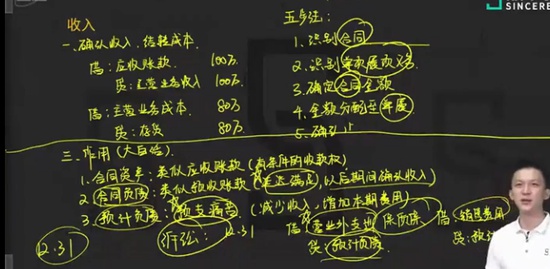 SINCERE
收入
一、确认收入，结转成本.
借：应收账款 100万
贷：主营业务收入 100万
借：主营业务成本 80万
贷：存货 80万
五步法：
1. 识别合同
2. 识别单项履约义务
3. 确定合同金额
4. 金额分配至单履
5. 确认
三、作用（大白话）
1. 合同资产：类似应收账款（有条件的收款权）
2. 合同负债：类似预收账款（，以后期间确认收入）
3. 预计负债：（减少收入，增加本期费用）
借：营业外支出 借：销售费用
贷：预计负债 贷：预计
12.31 诉讼：12.31